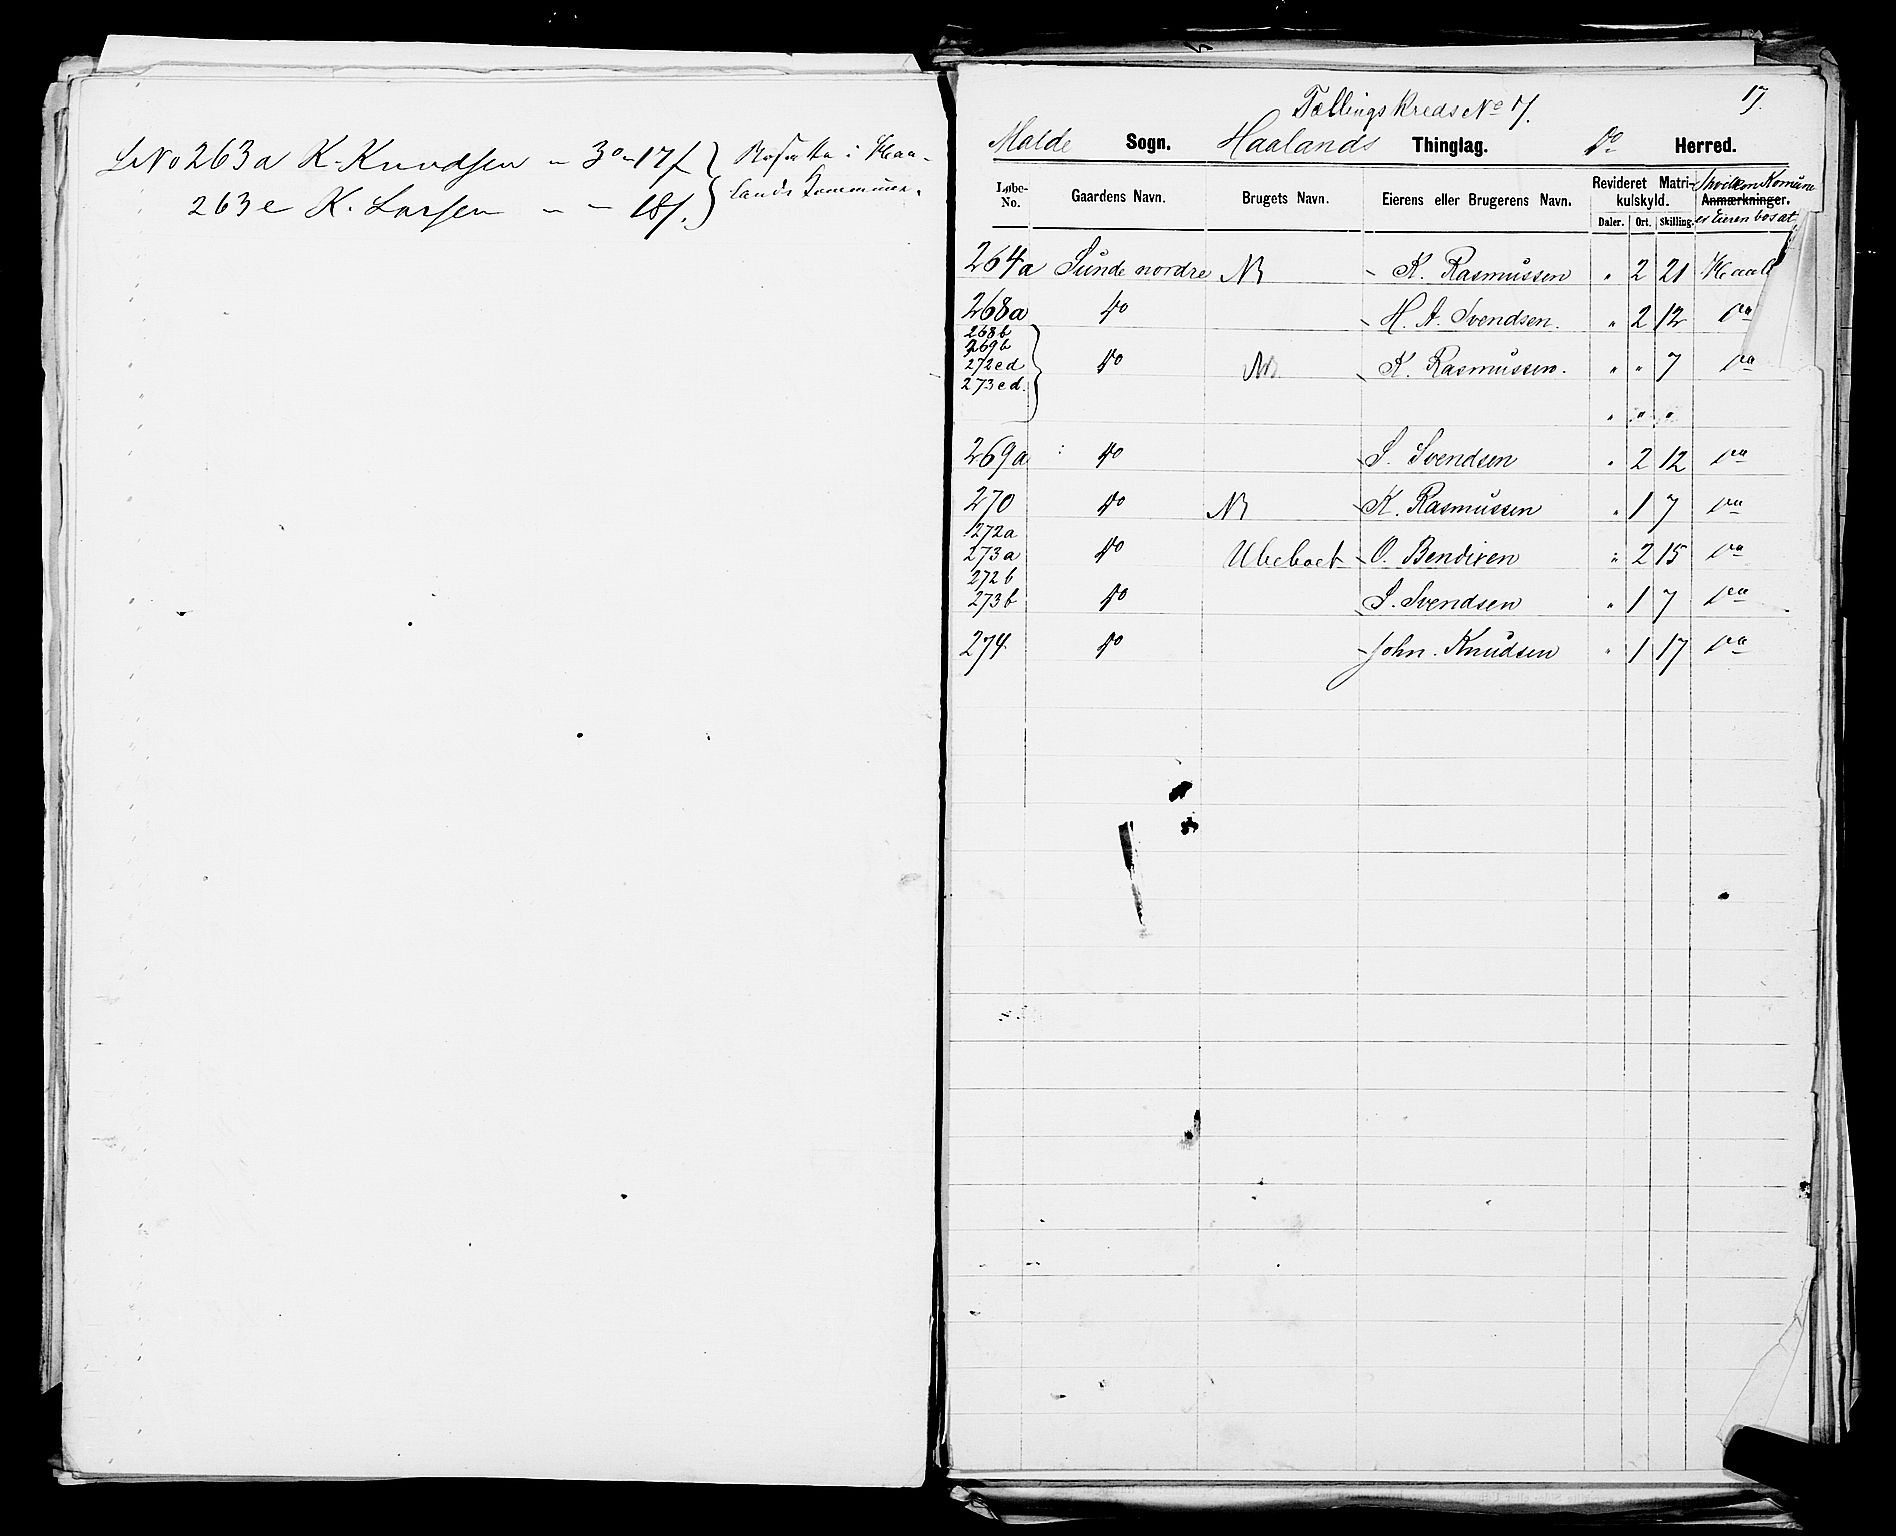 LNo 263a K. Knudsen - 3 o - 17 f } Bosatte i Haa-
263e K. Larsen - - 18 f. } lands Kommune.
Tællingskreds No 17.
17.
Malde Sogn. Haalands Thinglag. Do Herred.
Løbe-No. Gaardens Navn. Brugets Navn. Eierens eller Brugerens Navn. Revideret Matrikulskyld. Daler. Ort. Skilling. I hvilken Komune Anmærkninger. er Eieren bosat
264a Sunde nordre NB - K. Rasmussen " 2 21 Haal
268a Do - H. A. Svendsen. " 2 12 Do
268b
269b
272cd Do NB. - K. Rasmussen. " " 7 Do
273cd.
" " "
269a Do - S. Svendsen " 2 12 Do
270 Do NB - K. Rasmussen " 1 7 Do
272a
273a Do Ubeboet - O. Bendixen " 2 15 Do
272b
273b Do - S. Svendsen " 1 7 Do
274 Do - John. Knudsen " 1 17 Do